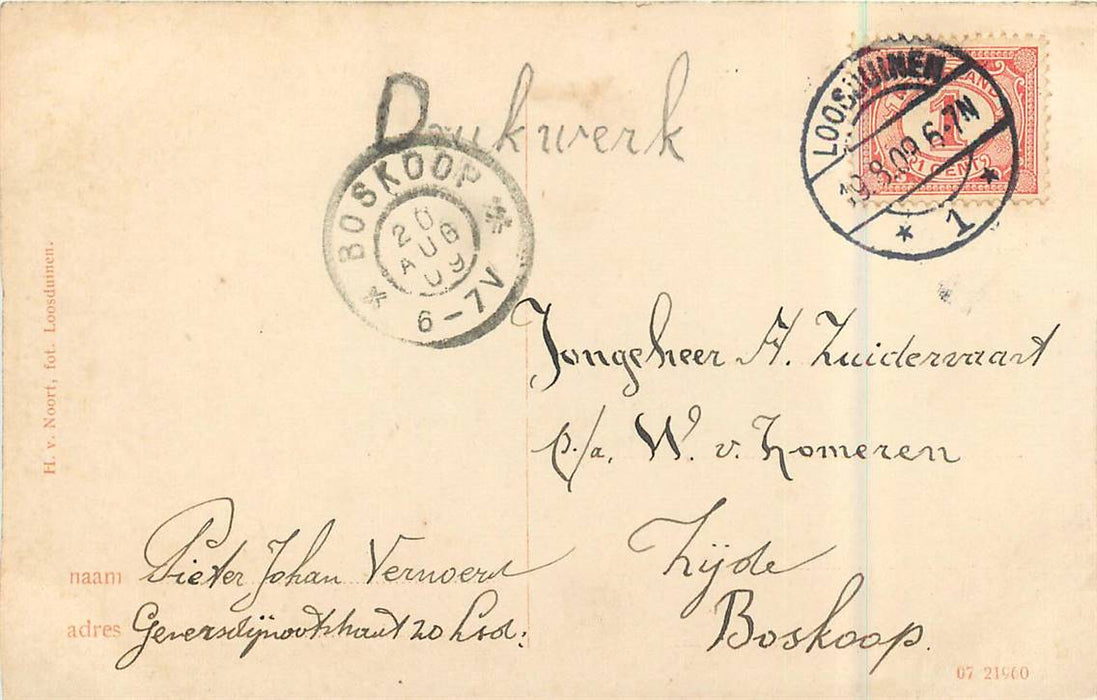 Drukwerk
LOOSDUINEN
19.8.09 6-7N
1
NEDERLAND
1
1 CENT
BOSKOOP
20
AUG
09
6-7V
H. v. Noort, fot. Loosduinen.
Jongeheer A. Zuidervaart
p/a. W. v. Zomeren
Zijde
Boskoop.
naam Pieter Johan
adres 20
07 21960